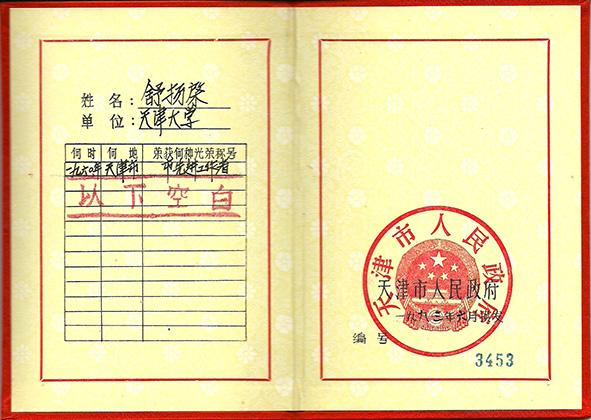 姓名：舒扬棨
单位：天津大学
何时 何地 荣获何种光荣称号
一九六〇年 天津市 市先进工作者
以下空白
天津市人民政府
天津市人民政府
一九八三年六月颁发
编号
3453